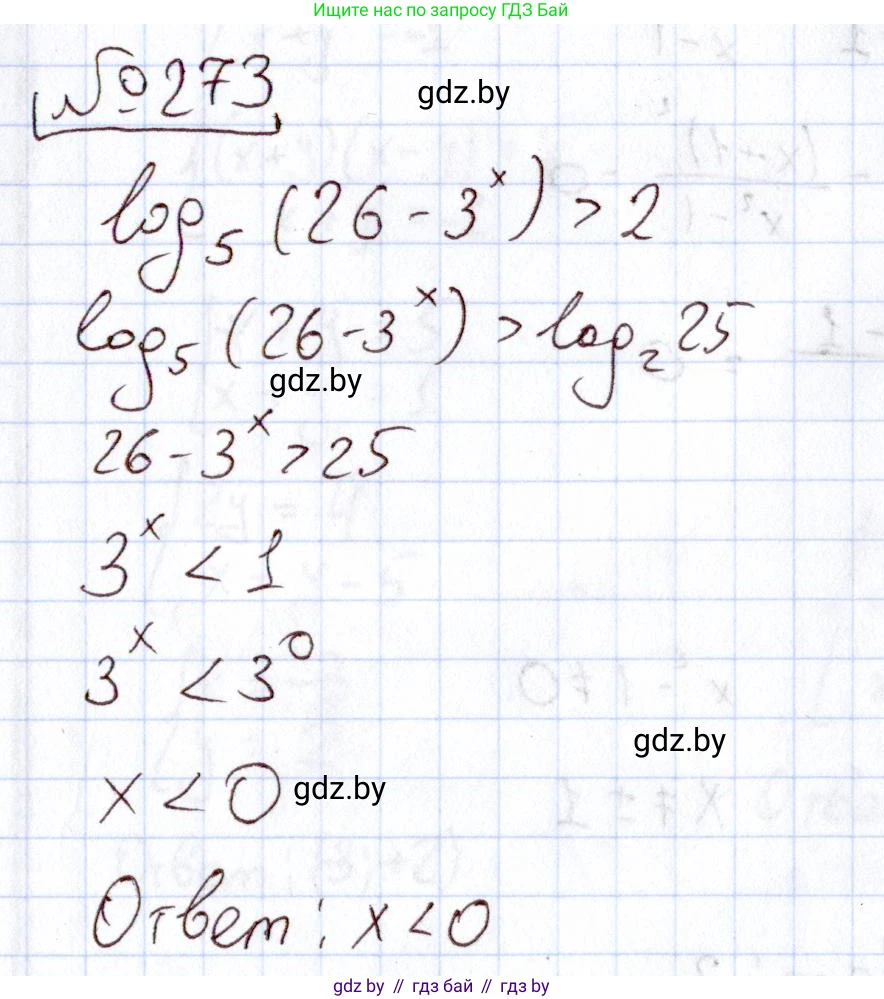 Ищите нас по запросу ГДЗ Бай
№273
gdz.by
log₅(26-3ˣ)>2
log₅(26-3ˣ)>log₂25
gdz.by
26-3ˣ>25
3ˣ<1
3ˣ<3⁰
gdz.by
x<0
gdz.by
Ответ: x<0
gdz.by // гдз бай // gdz.by